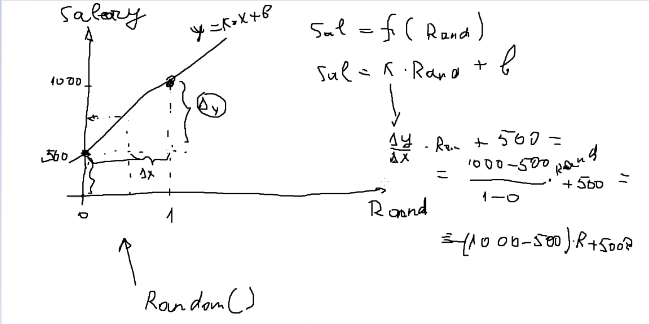 Salary
y = k·x + b
1000
Δy
500
Δx
0
1
Rand
Random()
Sal = f( Rand )
Sal = k · Rand + b
Δy/Δx · Ran + 500 =
= 1000-500/1-0 · Rand + 500 =
= (1000-500)·R+500